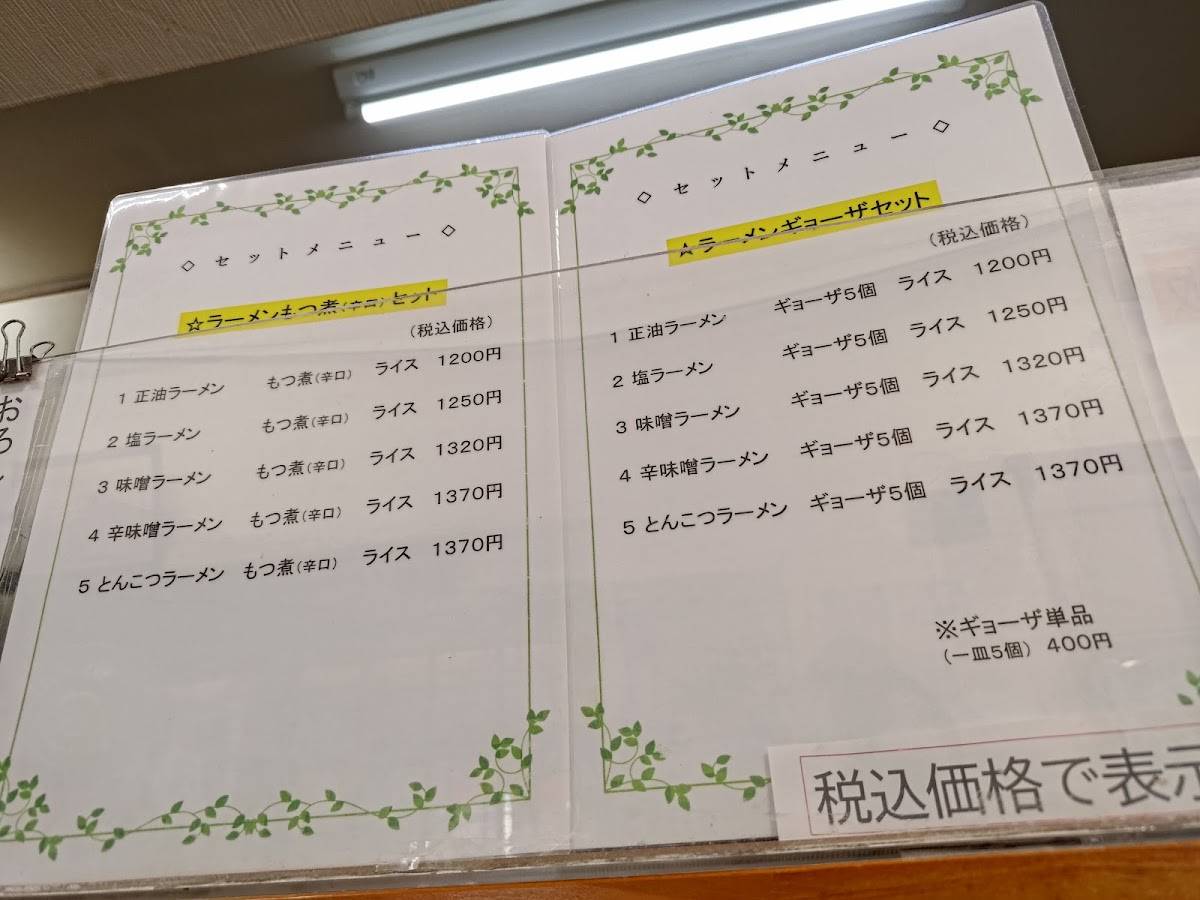 ◇ セットメニュー ◇
☆ラーメンもつ煮(辛口)セット
(税込価格)
1 正油ラーメン もつ煮(辛口) ライス 1200円
2 塩ラーメン もつ煮(辛口) ライス 1250円
3 味噌ラーメン もつ煮(辛口) ライス 1320円
4 辛味噌ラーメン もつ煮(辛口) ライス 1370円
5 とんこつラーメン もつ煮(辛口) ライス 1370円
◇ セットメニュー ◇
☆ラーメンギョーザセット
(税込価格)
1 正油ラーメン ギョーザ5個 ライス 1200円
2 塩ラーメン ギョーザ5個 ライス 1250円
3 味噌ラーメン ギョーザ5個 ライス 1320円
4 辛味噌ラーメン ギョーザ5個 ライス 1370円
5 とんこつラーメン ギョーザ5個 ライス 1370円
※ギョーザ単品
(一皿5個) 400円
税込価格で表示
おろ